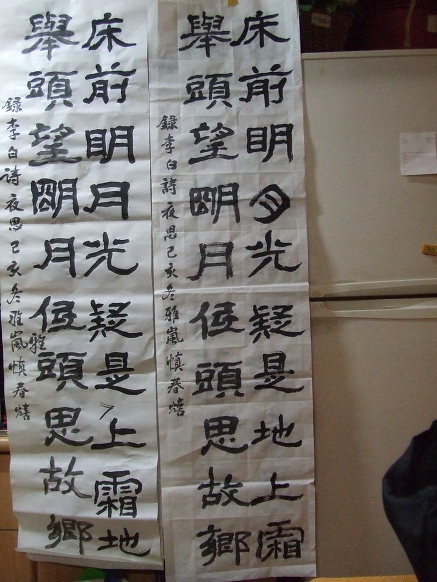 床前眀月光疑是地上霜
舉頭望朙月低頭思故鄉
錄李白詩夜思己亥冬雅嵐慎春熺
床前眀月光疑是上霜地
舉頭望朙月低頭思故鄉
雅
錄李白詩夜思己亥冬雅嵐慎春熺